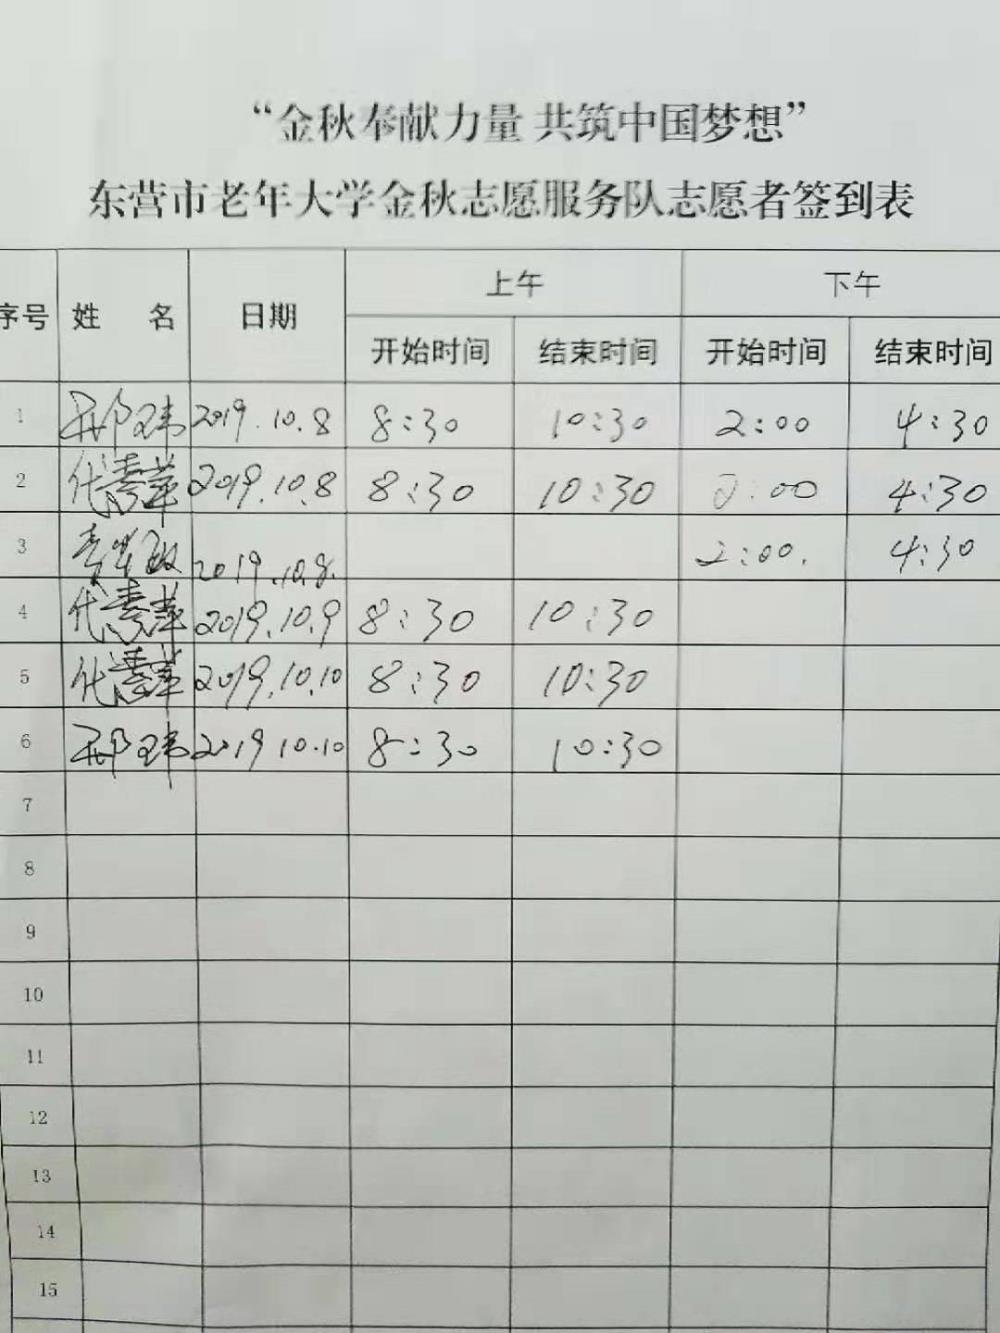 “金秋奉献力量 共筑中国梦想”
东营市老年大学金秋志愿服务队志愿者签到表
序号 姓 名 日期 上午 下午
开始时间 结束时间 开始时间 结束时间
1 邢玮 2019.10.8 8:30 10:30 2:00 4:30
2 代秀萍 2019.10.8 8:30 10:30 2:00 4:30
3 2019.10.8. 2:00. 4:30
4 代秀萍 2019.10.9 8:30 10:30
5 代秀萍 2019.10.10 8:30 10:30
6 邢玮 2019 10.10 8:30 10:30
7
8
9
10
11
12
13
14
15